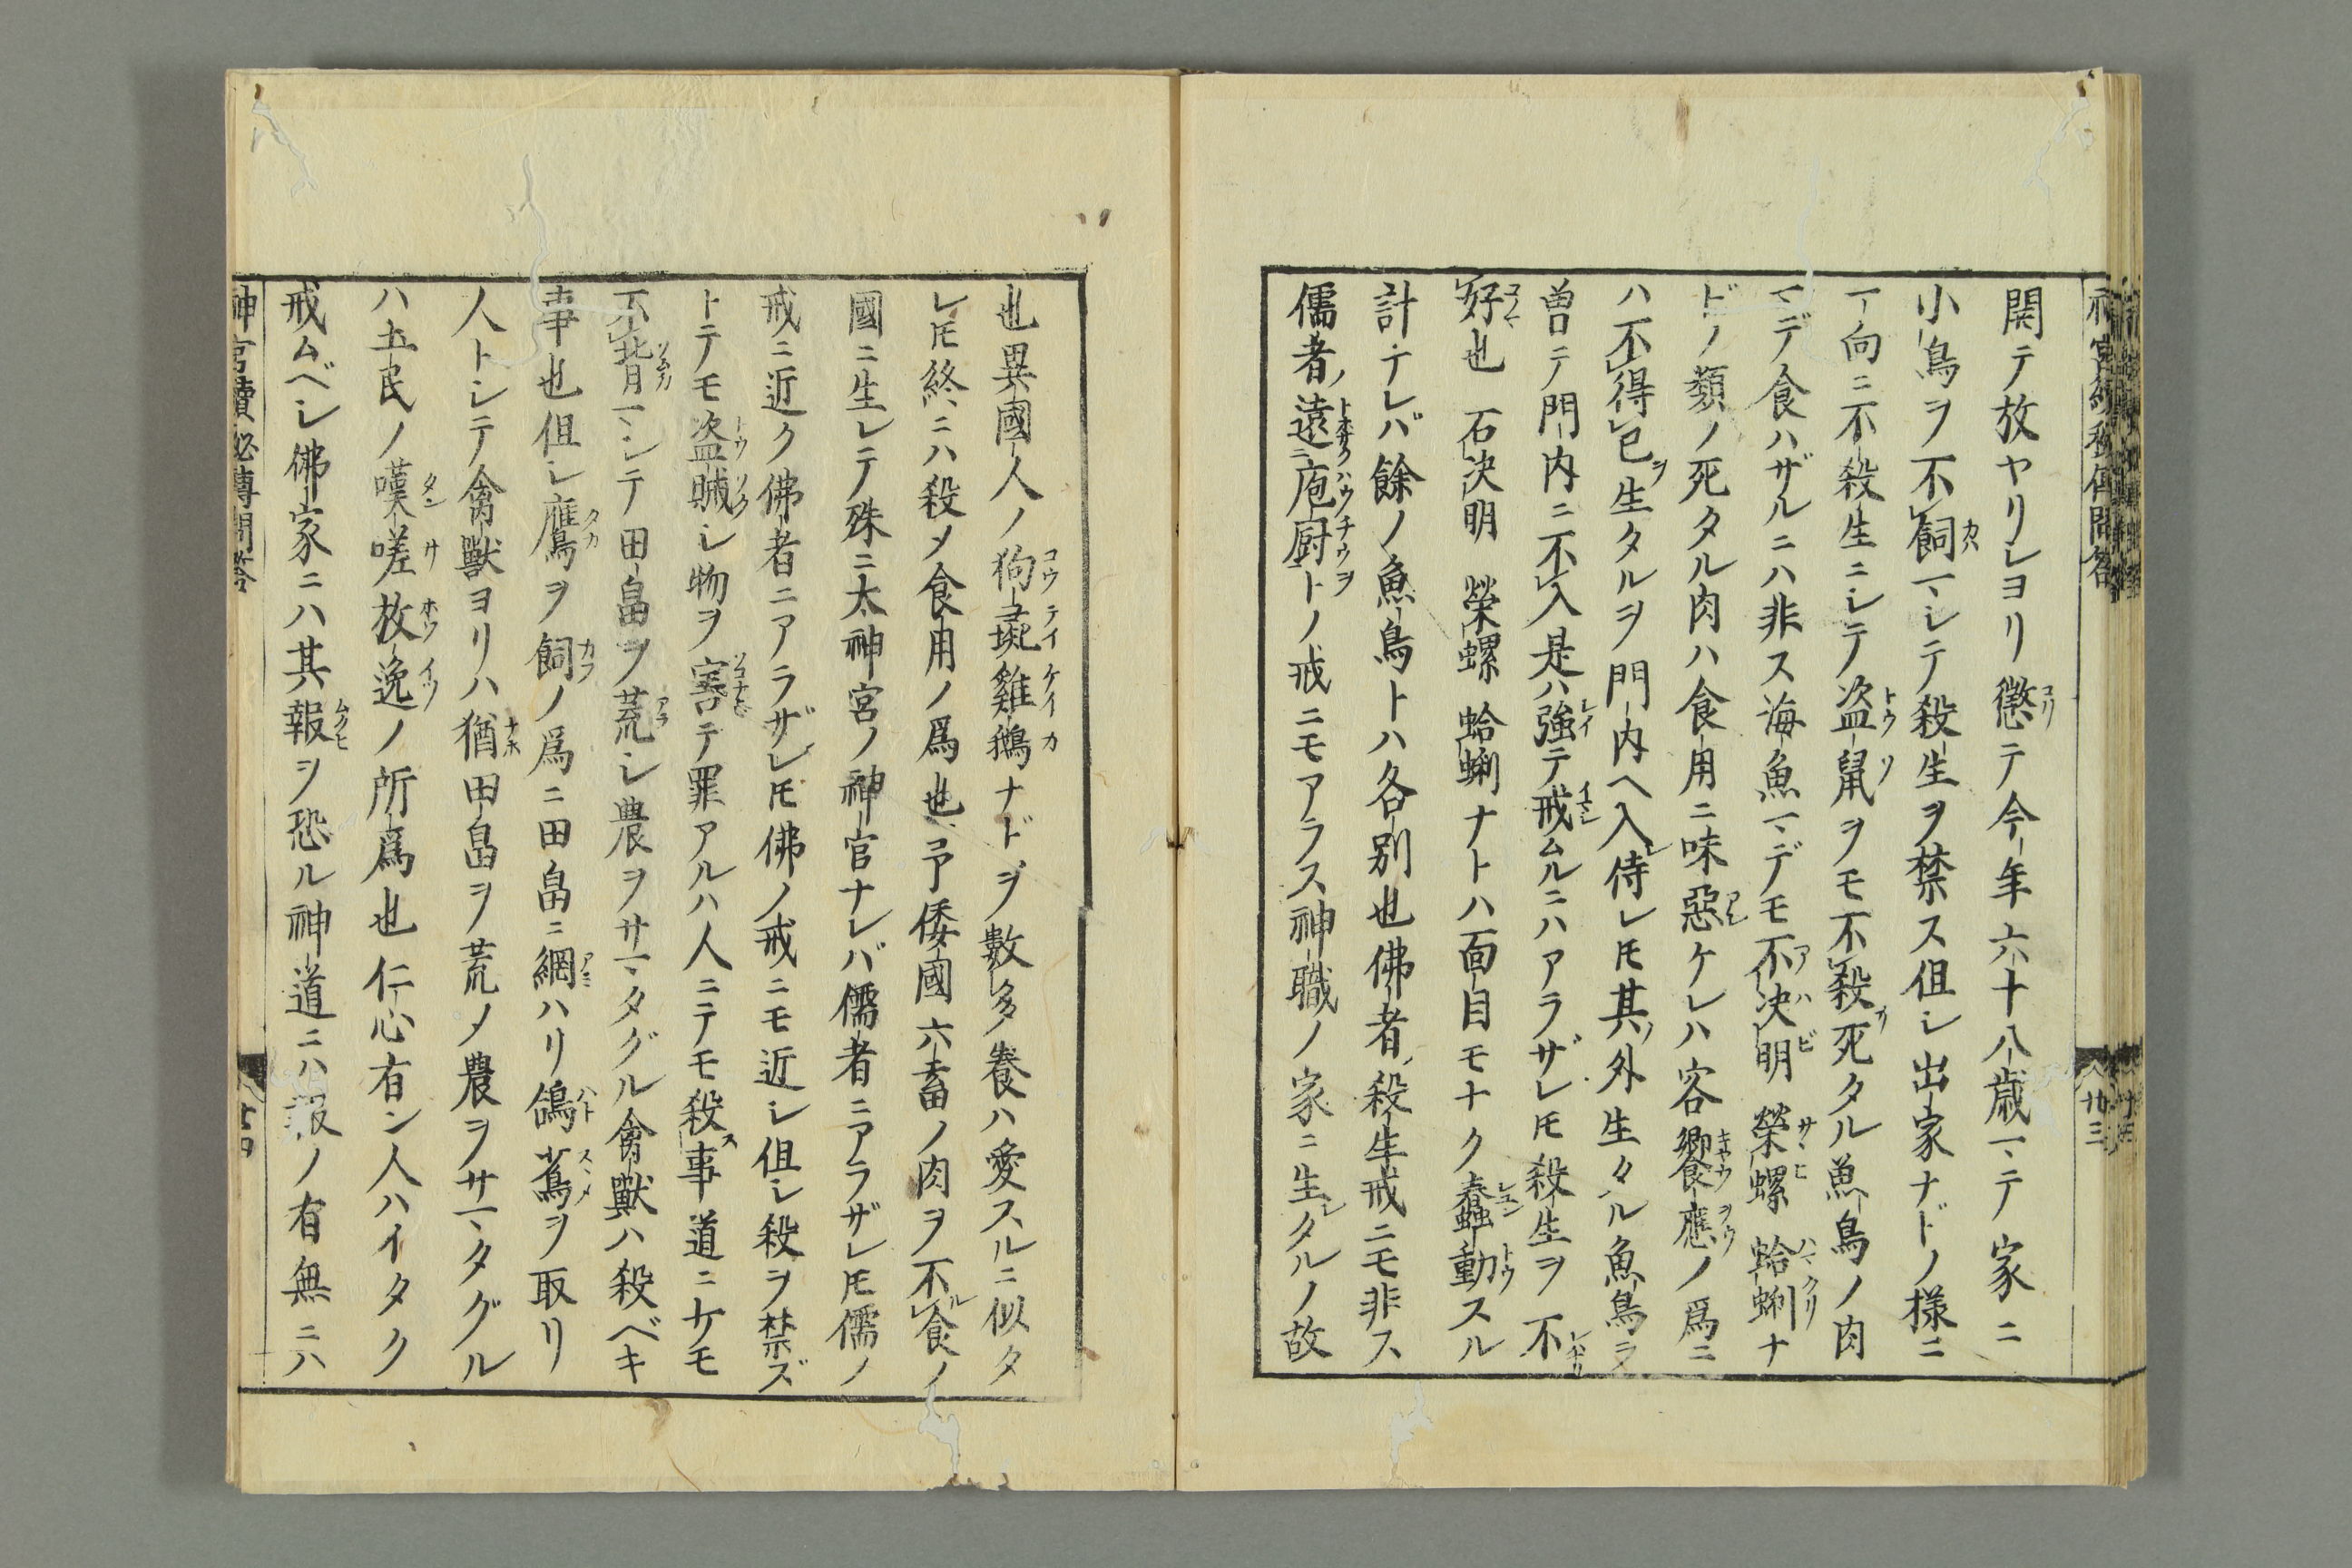 開テ放ヤリシヨリ懲テ今年六十八歳マテ家ニ
小鳥ヲ不飼マシテ殺生ヲ禁ス但シ出家ナドノ様ニ
一向ニ不殺生ニシテ盗鼠ヲモ不殺死タル魚鳥ノ肉
マデ食ハザルニハ非ス海魚マデモ不決明 榮螺 蛤蜊ナ
ドノ類ノ死タル肉ハ食用ニ味惡ケレハ客饗應ノ爲ニ
ハ不得已ヲ生タルヲ門内ヘ入侍レ𪜈其外生タル魚鳥ヲ
曽テ門内ニ不入是ハ強テ戒ムルニハアラザレ𪜈殺生ヲ不
好也 石決明 榮螺 蛤蜊ナトハ面目モナク蠢動スル
計テレバ餘ノ魚鳥トハ各別也佛者ノ殺生戒ニモ非ス
儒者ノ遠庖厨トノ戒ニモアラス神職ノ家ニ生レタルノ故
也異國人ノ狗彘雞鵝ナドヲ數多ク養ハ愛スルニ似タ
レ𪜈終ニハ殺メ食用ノ爲也予倭國六畜ノ肉ヲ不食ノ
國ニ生レテ殊ニ太神宮ノ神官ナレバ儒者ニアラザレ𪜈儒ノ
戒ニ近ク佛者ニアラザレ𪜈佛ノ戒ニモ近シ但シ殺ヲ禁ズ
トテモ盗賊シ物ヲ害テ罪アルハ人ニテモ殺ス事道ニケモ
不背マシテ田畠ヲ荒シ農ヲサマタグル禽獸ハ殺ベキ
事也但シ鷹ヲ飼ノ爲ニ田畠ニ網ハリ鴿 蔦ヲ取リ
人トシテ禽獸ヨリハ猶田畠ヲ荒メ農ヲサマタグル
ハ五民ノ嘆嗟放逸ノ所爲也仁心有ン人ハイタク
戒ムベシ佛家ニハ其報ヲ恐ル神道ニハ報ノ有無ニハ
神宮續秘傳問答